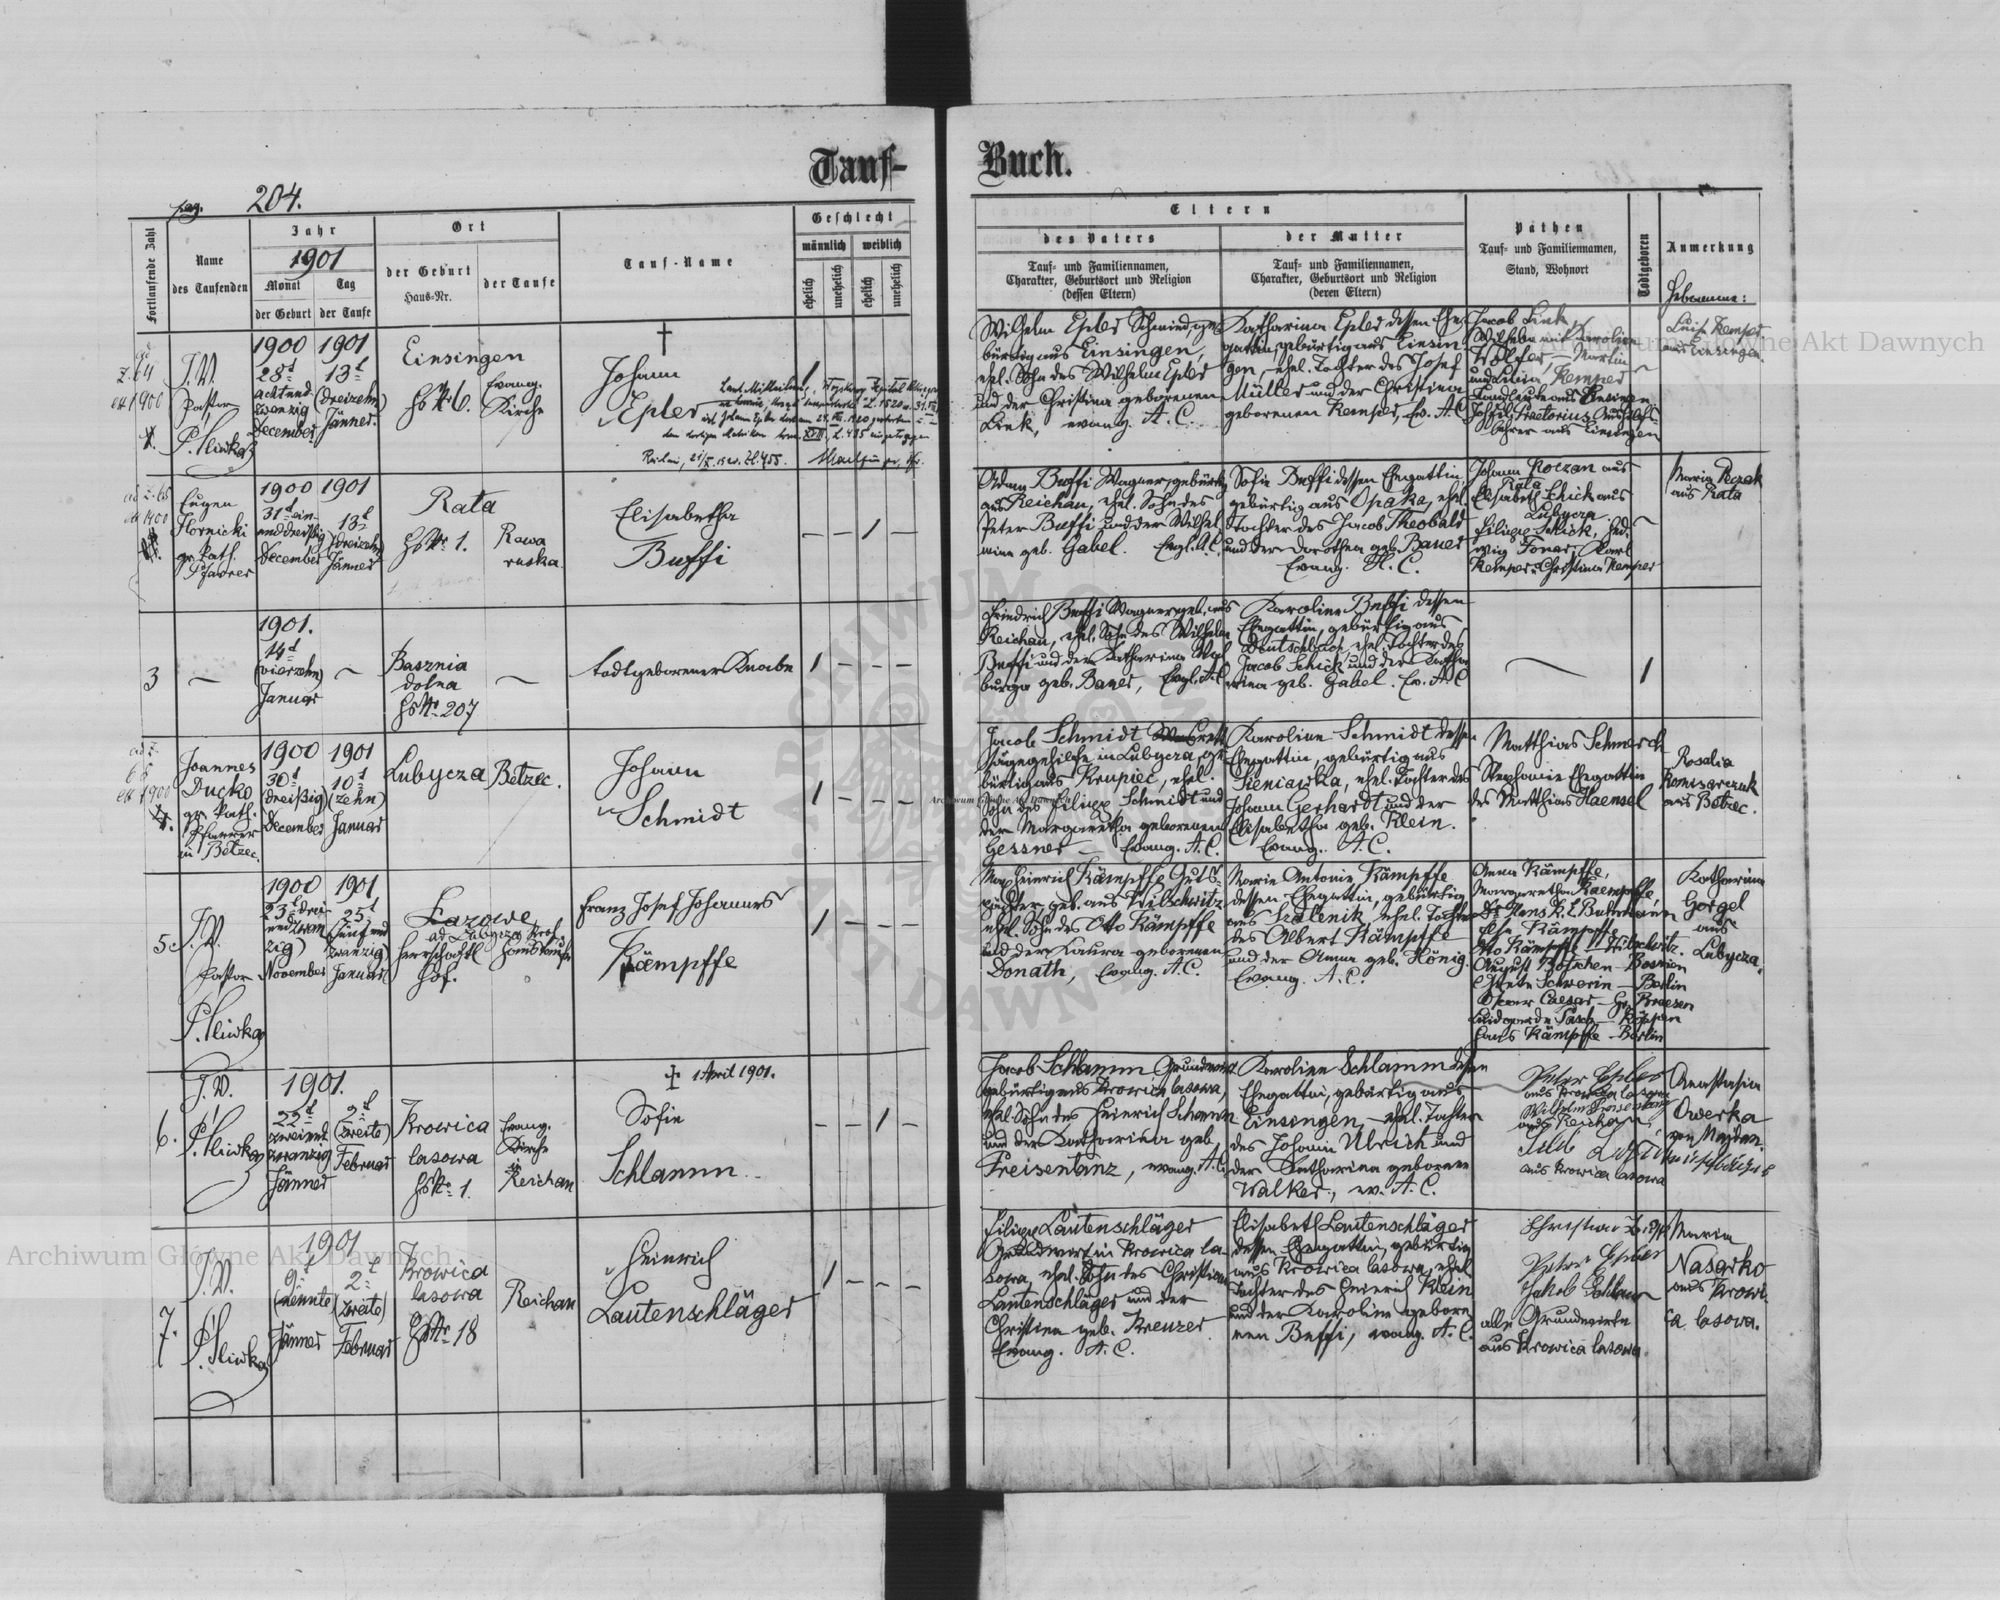 Tauf-
Buch.
pag. 204.
Fortlaufende Zahl
Name
des Taufenden
Jahr
1901
Monat
Tag
der Geburt
der Taufe
Ort
der Geburt
Haus-Nr.
der Taufe
Tauf-Name
Geschlecht
männlich
weiblich
ehelich
unehelich
ehelich
unehelich
Eltern
des Vaters
Tauf- und Familiennamen,
Charakter, Geburtsort und Religion
(dessen Eltern)
der Mutter
Tauf- und Familiennamen,
Charakter, Geburtsort und Religion
(deren Eltern)
Pathen
Tauf- und Familiennamen,
Stand, Wohnort
Todtgeboren
Anmerkung
Hebamme:
ad
Z. 64
ex 1900
J. W.
Pastor
P. Sliwka
1900
28t
achtund
zwanzig
December
1901
13t
(dreizehn)
Jänner.
Einsingen
Hs Nr 6.
Evang.
Kirche
†
Johann
Epler
1
Wilhelm Epler Schmied, ge-
bürtig aus Einsingen,
ehel. Sohn des Wilhelm Epler
und der Christina geborenen
Link, evang. A. C.
Katharina Epler dessen Ehe-
gattin, gebürtig aus Einsin-
gen, ehel. Tochter des Josef
Müller und der Christina
geborenen Kemper, Ev. A. C.
Jacob Link,
Wilhelm mit Karoline
Wolfer, Martin
und Luisa Kemper
Landleute aus Einsingen
Josef Praetorius Aushilfs-
lehrer aus Einsingen
Luise Kemper
aus Einsingen.
ad Z. 65
ex 1900
Eugen
Hornicki
gr. kath.
Pfarrer
1900
31t ein-
unddreißig
December
1901
13t
(dreizehn)
Jänner
Rata
Hs Nr 1.
Rawa
ruska.
Elisabetha
Buffi
– – 1 –
Adam Buffi Wagner, gebürtig
aus Reichau, ehel. Sohn des
Peter Buffi und der Wilhel-
mina geb. Gabel. Evgl. A. C.
Sofie Buffi dessen Ehegattin,
gebürtig aus Opaka, ehel.
Tochter des Jacob Theobald
und der Dorothea geb. Bauer
Evang. A. C.
Johann Koczan aus
Rata
Elisabeth Schick aus
Lubycza.
Filipp Schick, Hed-
wig Foner, Karl
Kemper, Christina Kemper
Maria Peczak
aus Rata
3
–
1901.
14t
(vierzehn)
Januar
–
Basznia
dolna
Hs Nr 207
–
todtgeborener Knabe
1 – – –
Friedrich Buffi Wagner, geb. aus
Reichau, ehel. Sohn des Wilhelm
Buffi und der Katharina Wal-
burga geb. Bauer, Evgl. A. C.
Karoline Buffi dessen
Ehegattin, gebürtig aus
Deutschbach, ehel. Tochter des
Jacob Schick und der Katha-
rina geb. Gabel. Ev. A. C.
–
1
ad Z.
66
ex 1900
Joannes
Ducko
gr. kath.
Pfarrer
in Bełzec.
1900
30t
(dreißig)
December
1901
10t
(zehn)
Januar
Lubycza
Bełzec.
Johann
Schmidt
1 – – –
Jacob Schmidt
Sägegehilfe in Lubycza, ge-
bürtig aus Krupiec, ehel.
Sohn des Filipp Schmidt und
der Margaretha geborenen
Gessner – Evang. A. C.
Karoline Schmidt dessen
Ehegattin, gebürtig aus
Sieniawka, ehel. Tochter des
Johann Gerhardt und der
Elisabetha geb. Klein.
Evang. A. C.
Matthias Schmerck
Stephanie Ehegattin
des Matthias Haensel
Rosalia
Romisarczuk
aus Bełzec.
5.
J. W.
Pastor
P. Sliwka
1900
23t (drei-
undzwan-
zig)
November
1901
25t
(fünfund
zwanzig)
Januar
Łazowe
ad Lubycza
herrschaftl.
Hof.
Haustaufe
Franz Josef Johannes
Kämpffe
1 – – –
Max Heinrich Kämpffe Guts-
pächter, geb. aus Wilschwitz,
ehel. Sohn des Otto Kämpffe
und der Laura geborenen
Donath, Evang. A. C.
Marie Antonie Kämpffe
dessen Ehegattin, gebürtig
aus Szalenik, ehel. Tochter
des Albert Kämpffe
und der Anna geb. König.
Evang. A. C.
Anna Kämpffe,
Margaretha Kaempffe,
Else Kämpffe
Otto Kämpffe –
August
Grete Schwerin – Berlin
Oscar Caesar –
Hans Kämpffe – Berlin
Katharina
Gorgel
aus
Lubycza.
6.
J. W.
P. Sliwka
1901.
22t
zweiund
zwanzig
Jänner
2t
(zweite)
Februar
Krowica
lasowa
Hs Nr 1.
Evang.
Kirche
in
Reichau
† 1 April 1901.
Sofie
Schlamm.
– – 1 –
Jacob Schlamm Grundwirt
gebürtig aus Krowica lasowa,
ehel. Sohn des Heinrich Schlamm
und der Katharina geb.
Freisentanz, evang. A. C.
Karoline Schlamm dessen
Ehegattin, gebürtig aus
Einsingen, ehel. Tochter
des Johann Ulrich und
der Katharina geborenen
Walker, ev. A. C.
Peter Epler
aus Krowica lasowa
Wilhelm Freisentanz
aus Reichau
aus Krowica lasowa
Anastasia
Owerka
von Majdan
7.
J. W.
P. Sliwka
1901
9t
(neunte)
Jänner
2t
(zweite)
Februar
Krowica
lasowa
Hs Nr 18
Reichau
Heinrich
Lautenschläger
1 – – –
Filipp Lautenschläger
Grundwirt in Krowica la-
sowa, ehel. Sohn des Christian
Lautenschläger und der
Christina geb. Kreuzer.
Evang. A. C.
Elisabeth Lautenschläger
dessen Ehegattin, gebürtig
aus Krowica lasowa, ehel.
Tochter des Heinrich Klein
und der Karoline gebore-
nen Buffi, evang. A. C.
Peter Epler
Jakob Schlamm
alle Grundwirte
aus Krowica lasowa.
Maria
Nasarko
aus Krowi-
ca lasowa.
Archiwum Główne Akt Dawnych
Archiwum Główne Akt Dawnych
Archiwum Główne Akt Dawnych